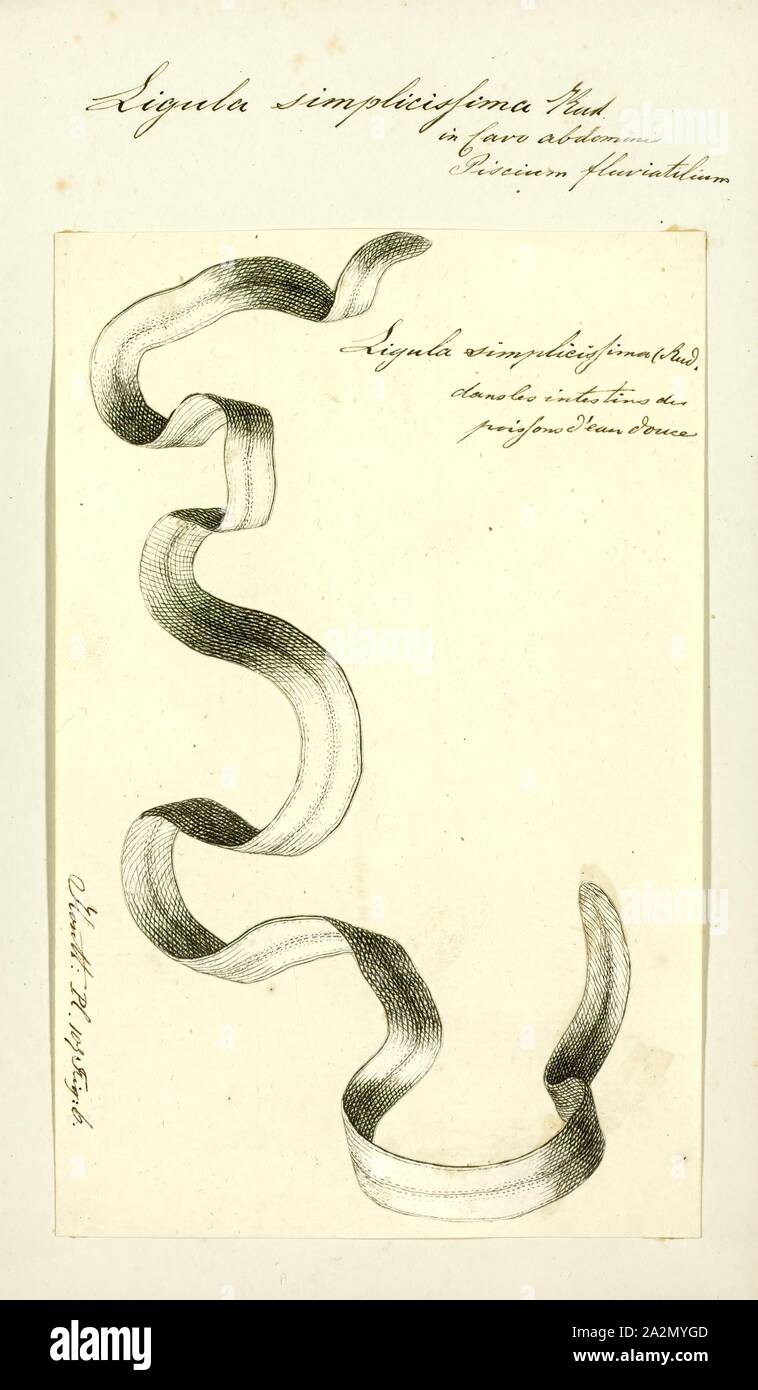 Ligula simplicissima Rud.
in Cavo abdominis
Piscium fluviatilium
Ligula simplicissima (Rud.
dans les intestins des
poissons d'eau douce
Pl. Fig: 6.
alamy
Image ID: 2A2MYGD
www.alamy.com